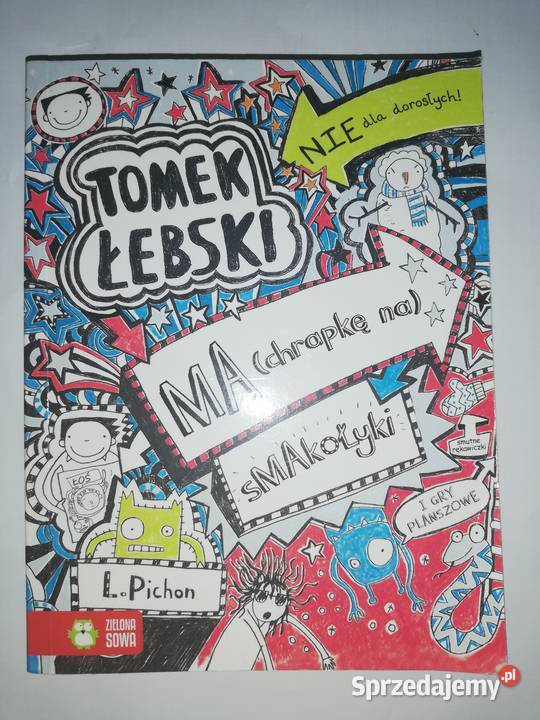 NIE dla dorosłych!
TOMEK
ŁEBSKI
MA (chrapkę na)
sMAkołyki
smutne
rękawiczki
I GRY
PLANSZOWE
ŁOŚ
L. Pichon
ZIELONA
SOWA
Sprzedajemy.pl